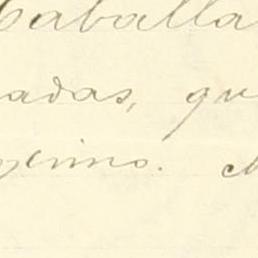 Caballa
adas, qu
ximo.